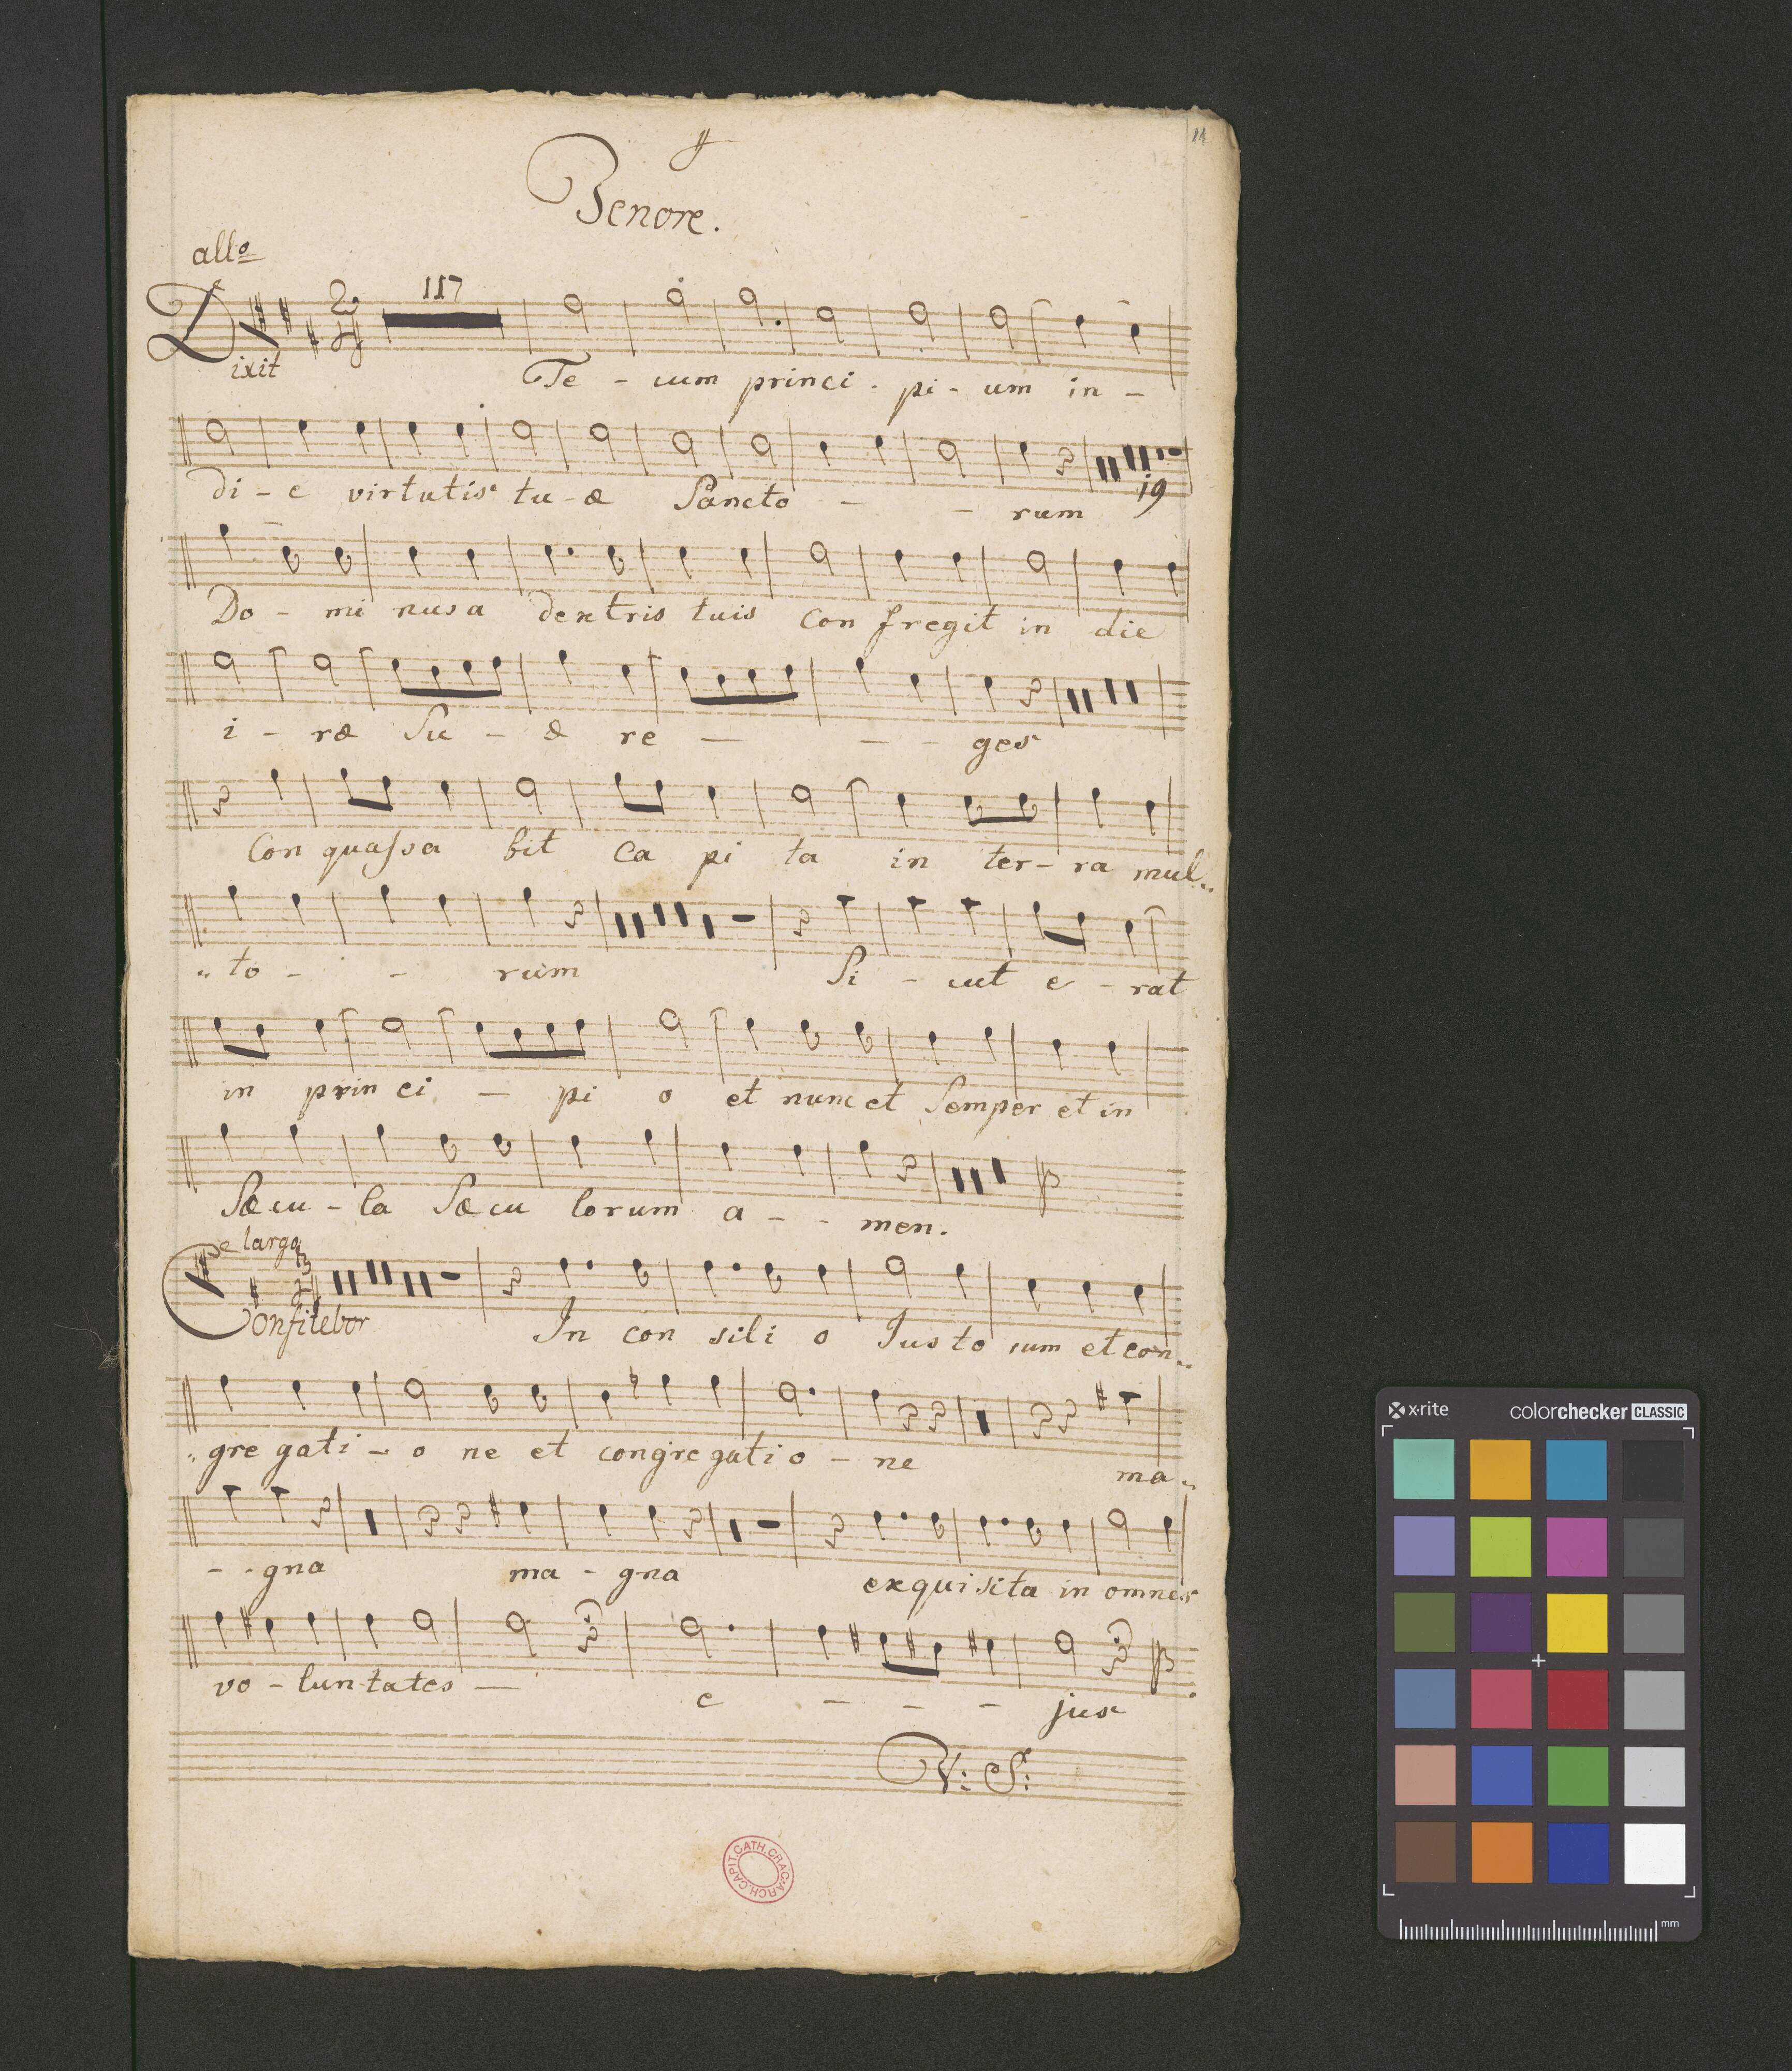 11
Tenore.
allo
2
4
117
Dixit
Te - cum princi - pi - um in -
di - e virtutis tu - æ Sancto - - rum
19
Do - mi nus a dextris tuis con fregit in die
i - ræ Su - æ re - - - ges
Con quassa bit ca pi ta in ter - ra mul„
„to - - rum Si - cut e - rat
in prin ci - pi o et nunc et Semper et in
Sæcu - la Sæcu lorum a - - men.
largo
3
4
Confitebor
In con sili o Justo rum et con„
„gre gati - o ne et congregatio - ne ma„
- - gna ma - gna exquisita in omnes
vo - luntates - e - - - jus
V: S:
ARCH. CAPIT. CATH. CRAC.
x-rite
colorchecker CLASSIC
mm